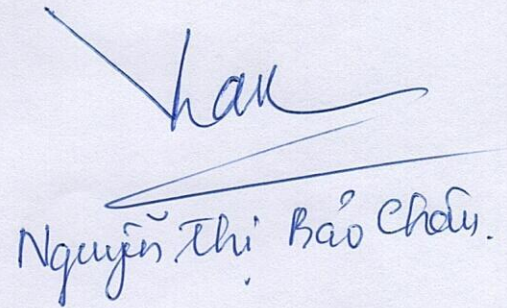 Nguyễn Thị Bảo Châu.